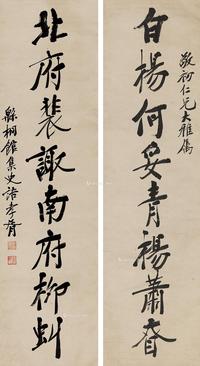 敬初仁兄大雅屬
白楊何妥青楊蕭眘
北府裴諏南府柳虬
緜桐館集史語孝胥